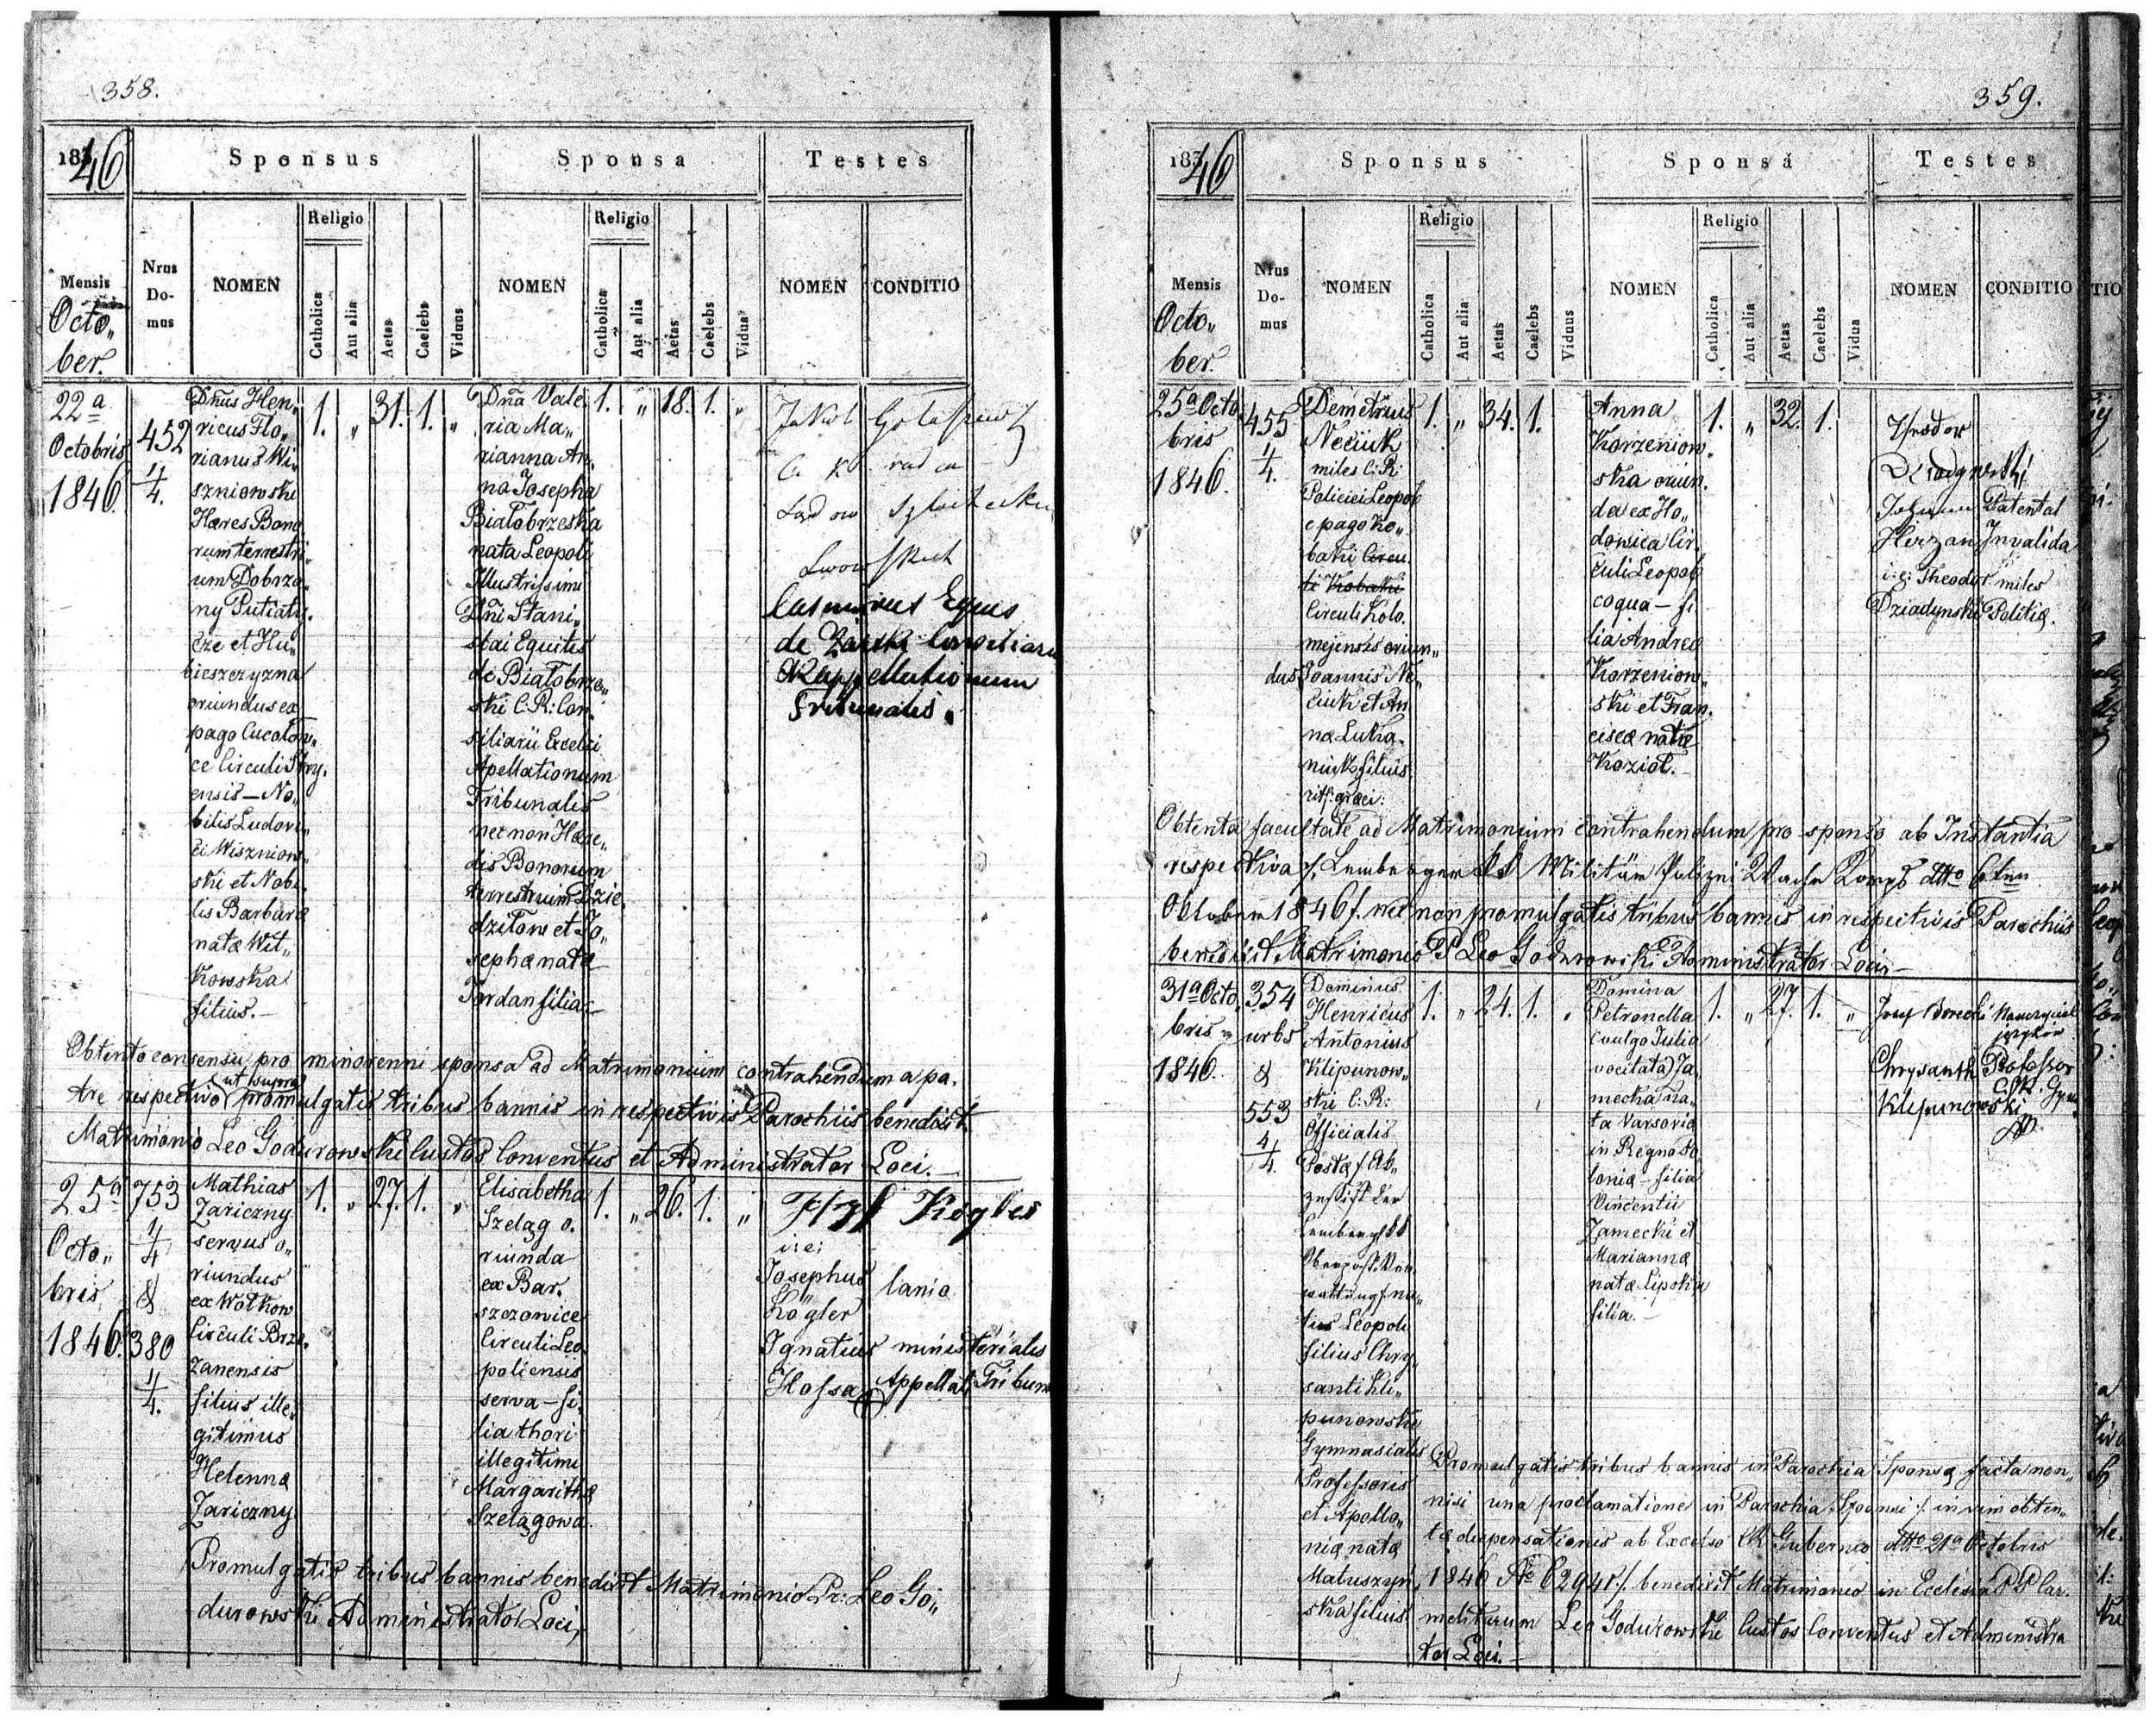 358.
1846
Sponsus
Sponsa
Testes
Mensis
Octo„
ber.
Nrus
Do-
mus
NOMEN
Religio
Catholica
Aut alia
Aetas
Caelebs
Viduus
NOMEN
Religio
Catholica
Aut alia
Aetas
Caelebs
Vidua
NOMEN
CONDITIO
22a
Octobris
1846.
452
4/4.
Dnus Hen„
ricus Flo„
rianus Wi„
szniowski
Hæres Bono
rum terrestri„
um Dobrza„
ny Putiaty„
cze et Hu„
bieszczyzna
oriundus ex
pago Cucułow„
ce Circuli Stry„
ensis — No„
bilis Ludovi„
ci Wiszniow„
ski et Nobi„
lis Barbaræ
natæ Wit„
kowska
filius. —
1. „ 31. 1. „
Dna Vale„
ria Ma„
rianna An„
na Josepha
Białobrzeska
nata Leopoli
Illustrissimi
Dni Stani„
slai Equitis
de Białobrze„
ski C: R: Con„
siliarii Excelsi
Apellationum
Tribunalis
nec non Hære„
dis Bonorum
terrestrium Dzie„
dziłow et Jo„
sephæ natæ
Jordan filia. —
1. „ 18. 1. „
Jakob
C. K. radca
Sądow Szlacheckich
Lwowskich
Casimirus Eques
de Consiliarius
CR Appellationum
Tribunalis.
Obtento consensu pro minorenni sponsa ad Matrimonium contrahendum a pa„
tre respectivo ut supra promulgatis tribus bannis in respectivis Parochiis benedixit
Matrimonio Leo Godurowski Custos Conventus et Administrator Loci. —
25a
Octo„
bris
1846.
753
4/4
&
380
4/4.
Mathias
Zariczny
servus o„
riundus
ex Wołkow
Circuli Brze„
zanensis
filius ille„
gitimus
Helennæ
Zariczny.
1. „ 27. 1. „
Elisabetha
Szeląg o„
riunda
ex Bar„
szczowice
Circuli Leo„
poliensis
serva — fi„
lia thori
illegitimi
Margarithæ
Szelągowa.
1. „ 26. 1. „
Kogler
i: e:
Josephus
Kögler
lanio
Ignatius
Hossa
ministerialis
Appellat: Tribun
Promulgatis tribus bannis benedixit Matrimonio Pr: Leo Go„
durowski Administrator Loci,
359.
1846
Sponsus
Sponsa
Testes
Mensis
Octo„
ber.
Nrus
Do-
mus
NOMEN
Religio
Catholica
Aut alia
Aetas
Caelebs
Viduus
NOMEN
Religio
Catholica
Aut alia
Aetas
Caelebs
Vidua
NOMEN
CONDITIO
25a Octo
bris
1846.
455
4/4.
Demetrius
Neciuk
miles C: R:
Policiei Leopol
e pago Ko„
baki Circu„
li Kobaki
Circuli Kolo„
mejensis oriun„
dus Joannis Ne„
ciuk et An„
næ Luka„
niuk filius
rit: græci:
1. „ 34. 1.
Anna
Korzeniow„
ska oriun„
da ex Ho„
dowica Cir„
culi Leopol
coqua — fi„
lia Andreæ
Korzeniow„
ski et Fran„
ciscæ natæ
Kozioł. —
1. „ 32. 1.
Theodor
Johann
Hirzan
Patental
Invalida
i: e: Theodor
Dziadynski
miles
Politiæ.
Obtenta facultate ad Matrimonium contrahendum pro sponso ab Instantia
respectiva /: Lemberger Militär Polizei Wache dtto 6ten
October 1846 /. nec non promulgatis tribus bannis in respectivis Parochiis
benedixit Matrimonio P Leo Godurowski Administrator Loci —
31a Octo
bris
1846.
354
urbs
&
553
4/4.
Dominus
Henricus
Antonius
Klipunow„
ski C: R:
Officialis
Postæ
Lemberg
natus Leopoli
filius Chry„
santi Kli„
punowski
Gymnasialis
Professoris
et Apollo„
niæ natæ
Matuszyn„
ska filius.
1. „ 24. 1. „
Domina
Petronella
(vulgo Julia
vocitata) Za„
mecka na„
ta Varsoviæ
in Regno Po„
loniæ — filia
Vincentii
Zamecki et
Mariannæ
natæ Lipska
filia. —
1. „ 27. 1. „
Borecki
Chrysanth
Klipunowski
Professor
C.K. Gym.
Promulgatis tribus bannis in Parochia Sponsæ facta non„
nisi una proclamatione in Parochia Sponsi /. in vim obten„
tæ dispensationis ab Excelso CR Gubernio dtto 21a Octobris
1846 No 62941 /. benedixit Matrimonio in Ecclesia PP Car„
melitarum Leo Godurowski Custos Conventus et Administra
tor Loci. —